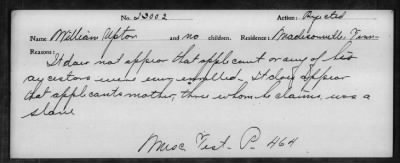 No. 23002 Action: Rejected
Name William Upton and no children. Residence: Madisonville, Tenn
Reasons:
It does not appear that applicant or any of his
ancestors were ever enrolled. It does appear
that applicants mother, thru whom he claims, was a
slave
Misc. Test. P. 464